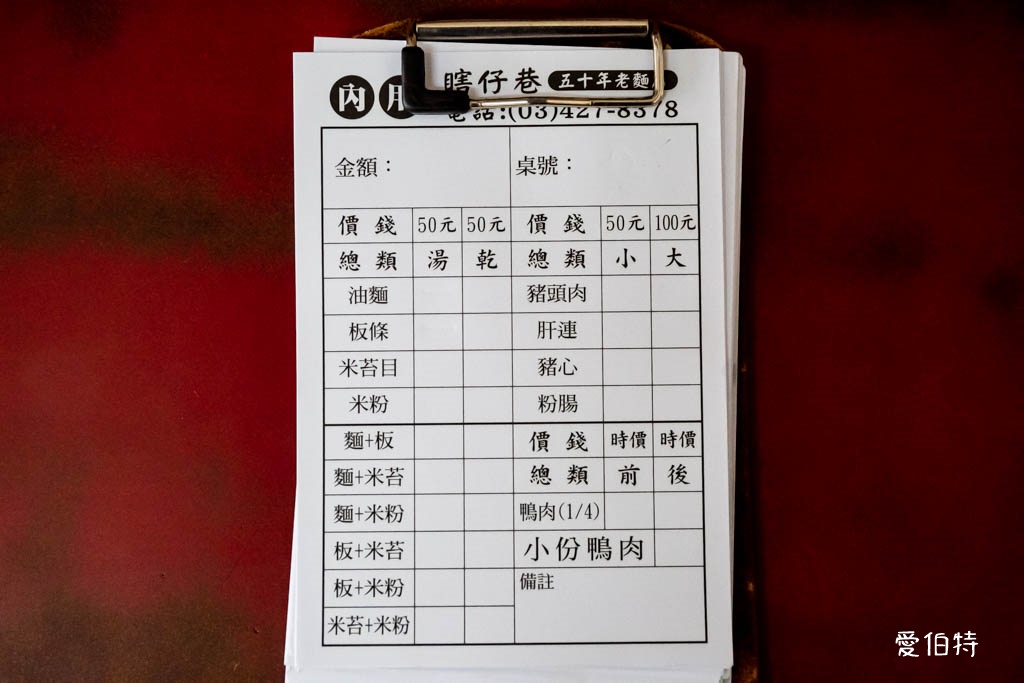 內用 瞎仔巷 五十年老麵店
電話:(03)427-8378
金額： 桌號：
價錢 50元 50元 價錢 50元 100元
總類 湯 乾 總類 小 大
油麵 豬頭肉
板條 肝連
米苔目 豬心
米粉 粉腸
麵+板 價錢 時價 時價
麵+米苔 總類 前 後
麵+米粉 鴨肉(1/4)
板+米苔 小份鴨肉
板+米粉 備註
米苔+米粉
愛伯特